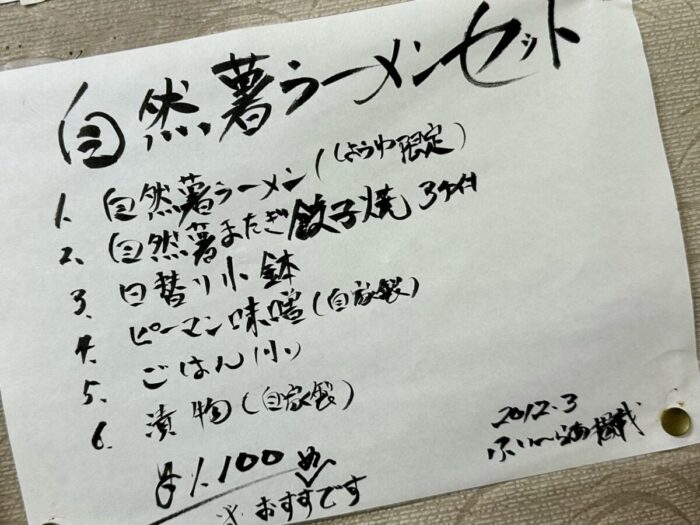 自然薯ラーメンセット
1. 自然薯ラーメン(しょうゆ限定)
2. 自然薯またぎ餃子焼 3ケ付
3. 日替り小鉢
4. ピーマン味噌(自家製)
5. ごはん(小)
6. 漬物(自家製)
¥1.100
※おすすめです
2012.3
掲載